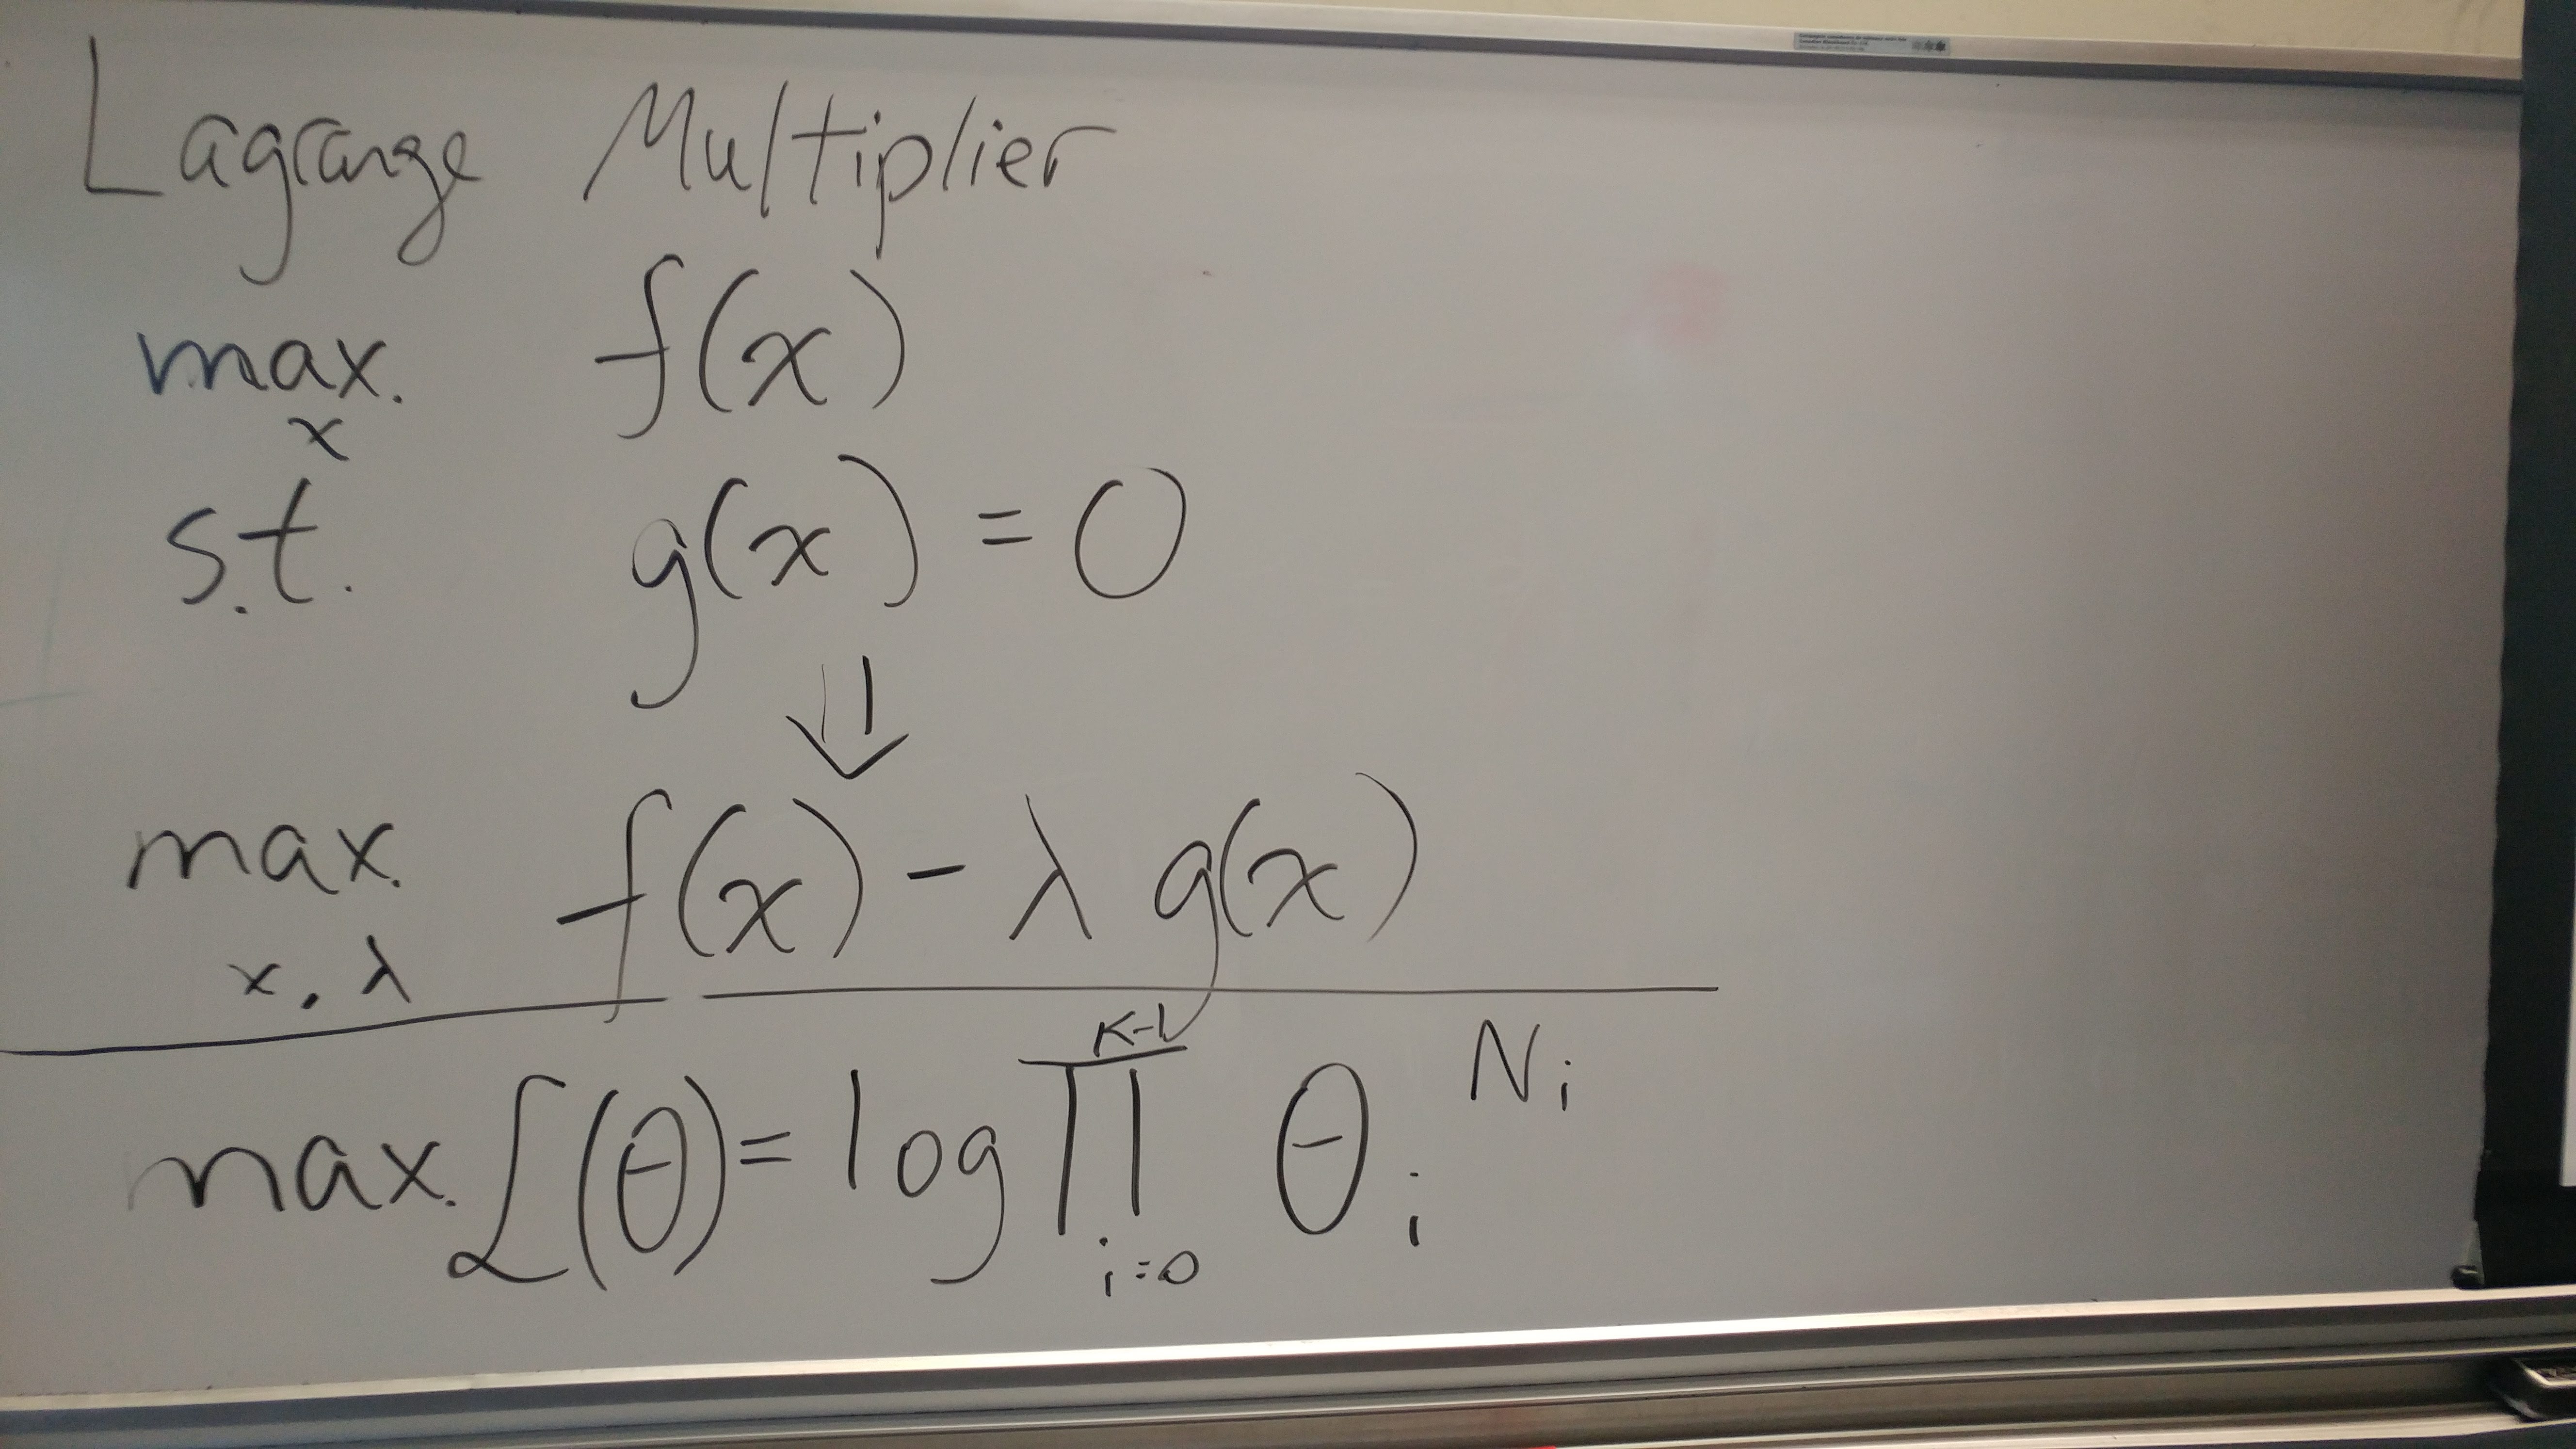 Lagrange Multiplier
max. f(x)
x
s.t. g(x) = 0
⇓
max. f(x) - λ g(x)
x, λ
max. ℒ(θ) = log ∏_{i=0}^{K-1} θ_i^{N_i}